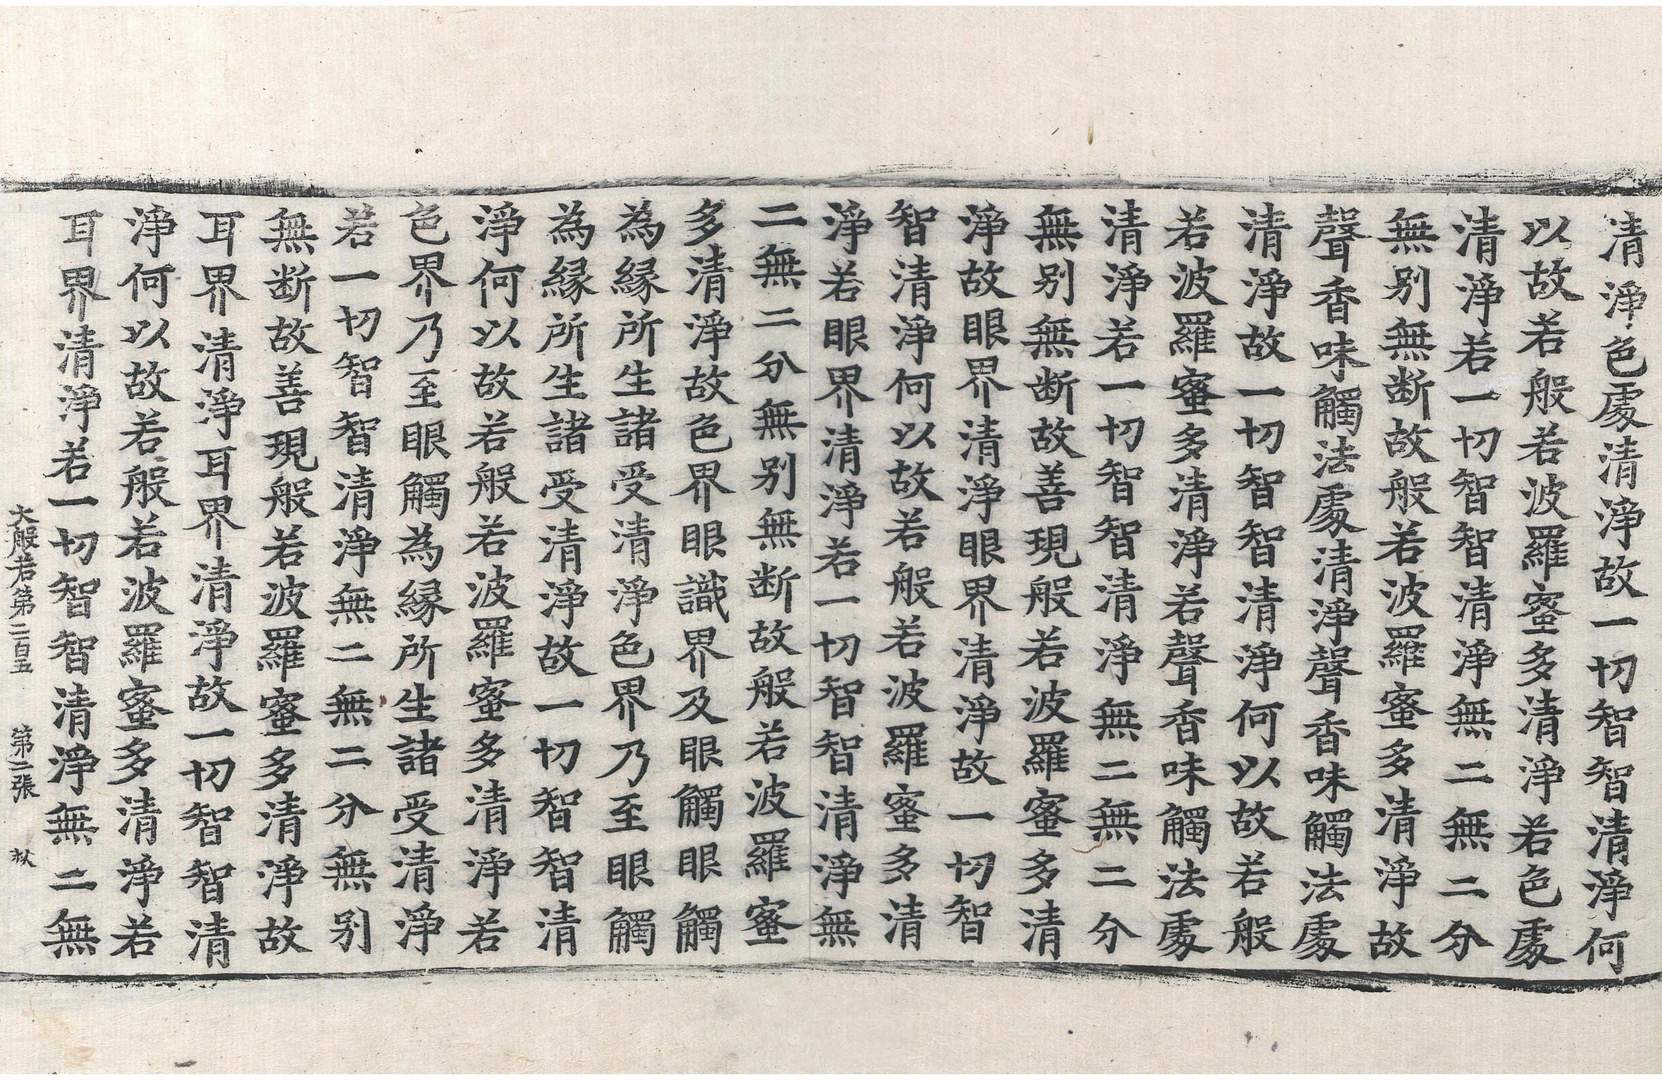 清淨色處清淨故一切智智清淨何
以故若般若波羅蜜多清淨若色處
清淨若一切智智清淨無二無二分
無别無断故般若波羅蜜多清淨故
聲香味觸法處清淨聲香味觸法處
清淨故一切智智清淨何以故若般
若波羅蜜多清淨若聲香味觸法處
清淨若一切智智清淨無二無二分
無别無断故善現般若波羅蜜多清
淨故眼界清淨眼界清淨故一切智
智清淨何以故若般若波羅蜜多清
淨若眼界清淨若一切智智清淨無
二無二分無别無断故般若波羅蜜
多清淨故色界眼識界及眼觸眼觸
為縁所生諸受清淨色界乃至眼觸
為縁所生諸受清淨故一切智智清
淨何以故若般若波羅蜜多清淨若
色界乃至眼觸為縁所生諸受清淨
若一切智智清淨無二無二分無别
無断故善現般若波羅蜜多清淨故
耳界清淨耳界清淨故一切智智清
淨何以故若般若波羅蜜多清淨若
耳界清淨若一切智智清淨無二無
大般若第二百五 第二張